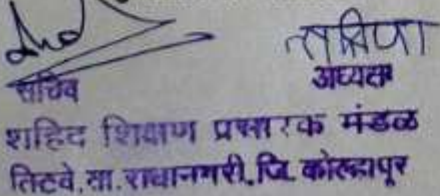 सचिव अध्यक्ष
शहिद शिक्षण प्रसारक मंडळ
तिटवे, ता. राधानगरी, जि. कोल्हापूर